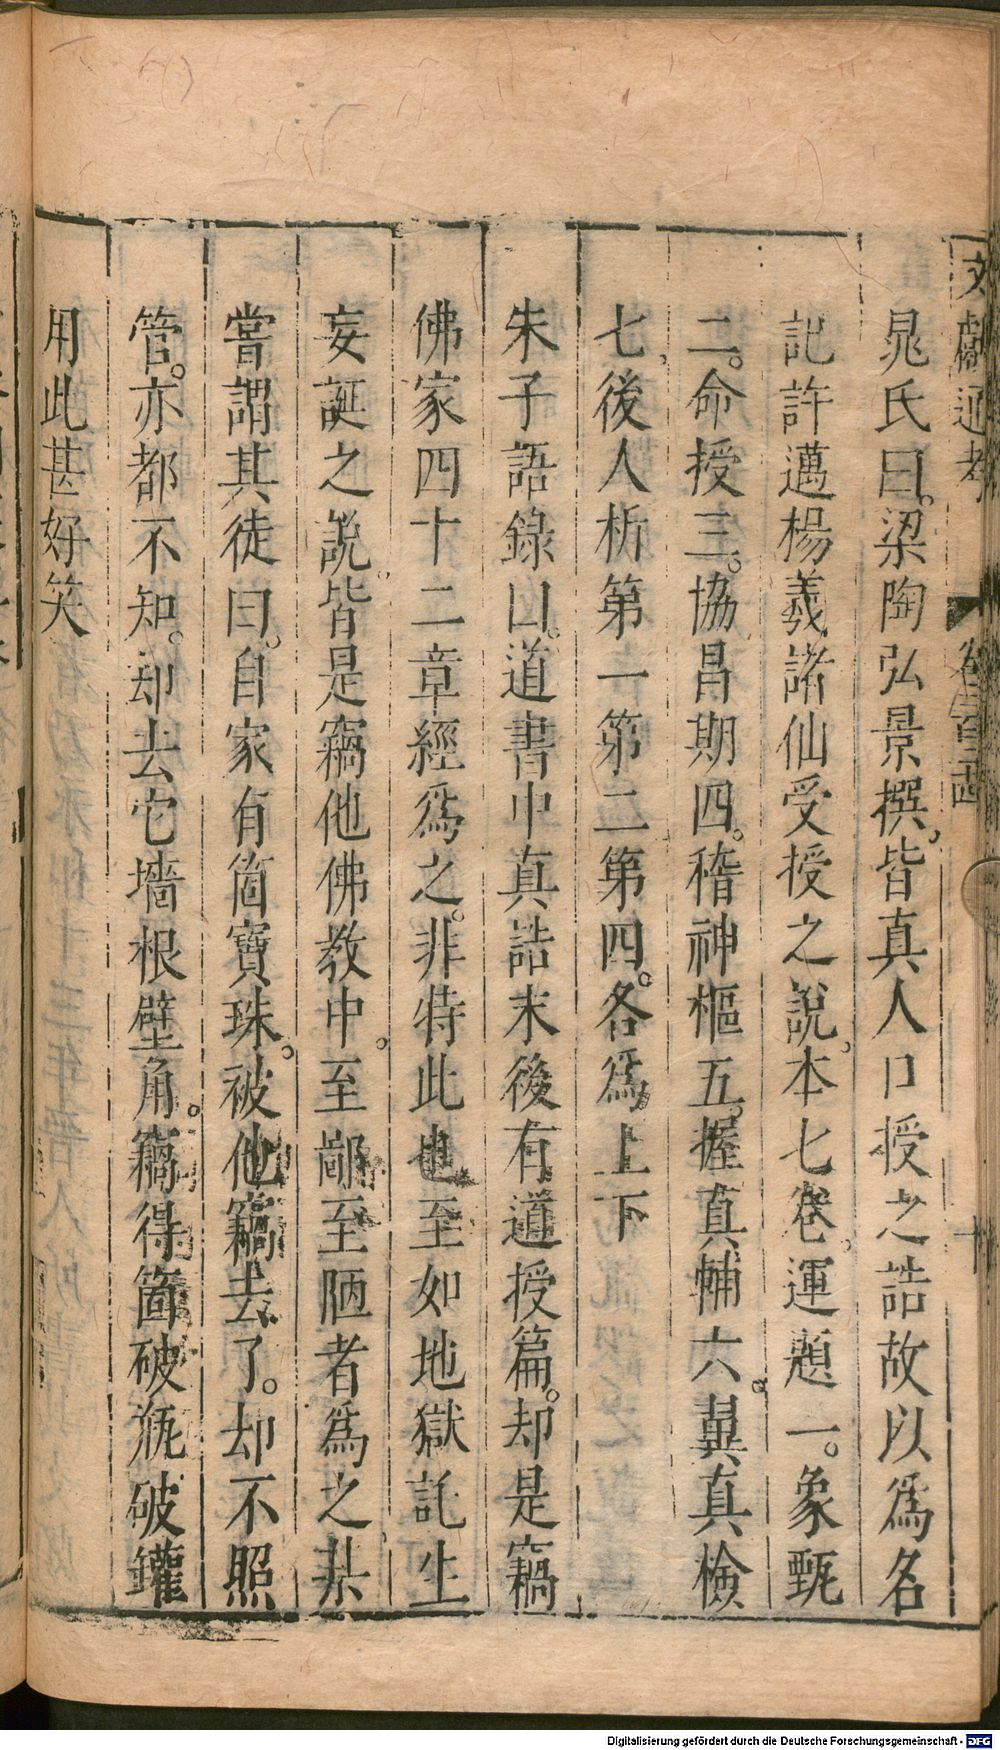 文獻通考 卷二百二十四 十
晁氏曰。梁陶弘景撰。皆真人口授之誥故以爲名
記許邁楊羲諸仙受授之說。本七卷。運題一。象甄
二。命授三。協昌期四。稽神樞五。握真輔六。翼真檢
七。後人析第一第二第四。各爲上下
朱子語錄曰。道書中真誥末後有道授篇。却是竊
佛家四十二章經爲之。非特此也至如地獄託生
妄誕之說。皆是竊他佛教中。至鄙至陋者爲之。某
嘗謂其徒曰。自家有箇寶珠。被他竊去了。却不照
管。亦都不知。却去它墻根壁角。竊得箇破瓶破罐
用此甚好笑
Digitalisierung gefördert durch die Deutsche Forschungsgemeinschaft - DFG